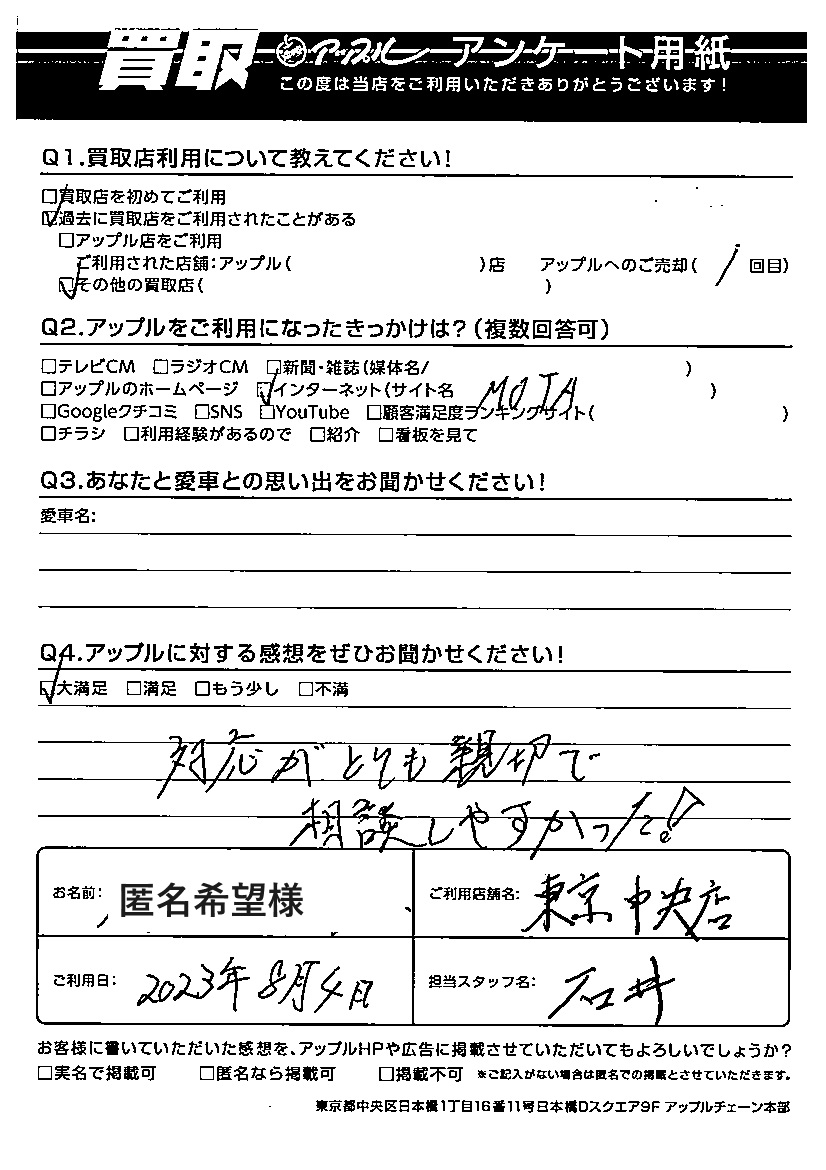 買取 アップル アンケート用紙
この度は当店をご利用いただきありがとうございます!
Q1.買取店利用について教えてください!
□買取店を初めてご利用
☑過去に買取店をご利用されたことがある
□アップル店をご利用
ご利用された店舗:アップル( )店 アップルへのご売却( 1 回目)
☑その他の買取店( )
Q2.アップルをご利用になったきっかけは?(複数回答可)
□テレビCM □ラジオCM □新聞・雑誌(媒体名/ )
□アップルのホームページ ☑インターネット(サイト名 MOTA )
□Googleクチコミ □SNS □YouTube □顧客満足度ランキングサイト( )
□チラシ □利用経験があるので □紹介 □看板を見て
Q3.あなたと愛車との思い出をお聞かせください!
愛車名:
Q4.アップルに対する感想をぜひお聞かせください!
☑大満足 □満足 □もう少し □不満
対応がとても親切で
相談しやすかった!
お名前: 匿名希望様 ご利用店舗名: 東京中央店
ご利用日: 2023年8月4日 担当スタッフ名: 石井
お客様に書いていただいた感想を、アップルHPや広告に掲載させていただいてもよろしいでしょうか?
□実名で掲載可 □匿名なら掲載可 □掲載不可 ※ご記入がない場合は匿名での掲載とさせていただきます。
東京都中央区日本橋1丁目16番11号日本橋Dスクエア9F アップルチェーン本部